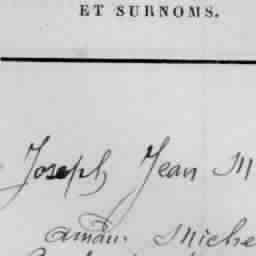 ET SURNOMS.
Joseph Jean M
amân. Miche